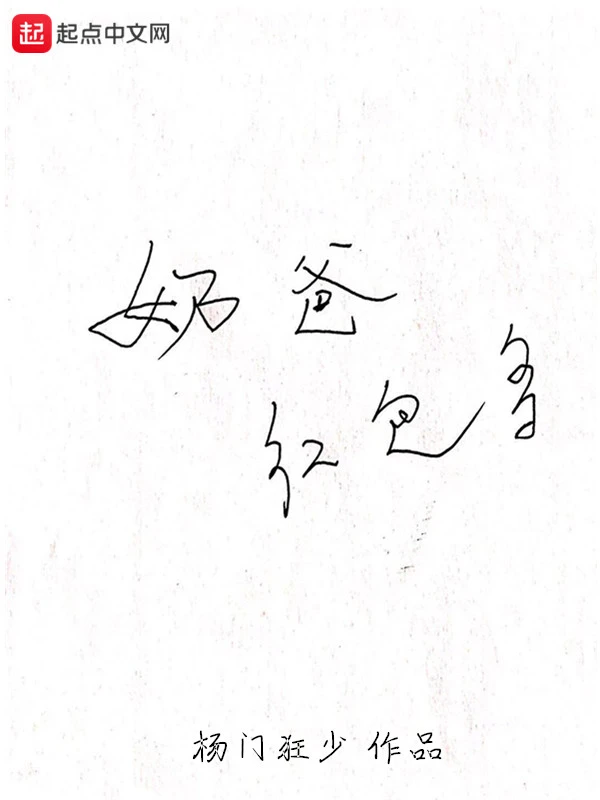 起 起点中文网
奶爸
红包多
杨门狂少 作品